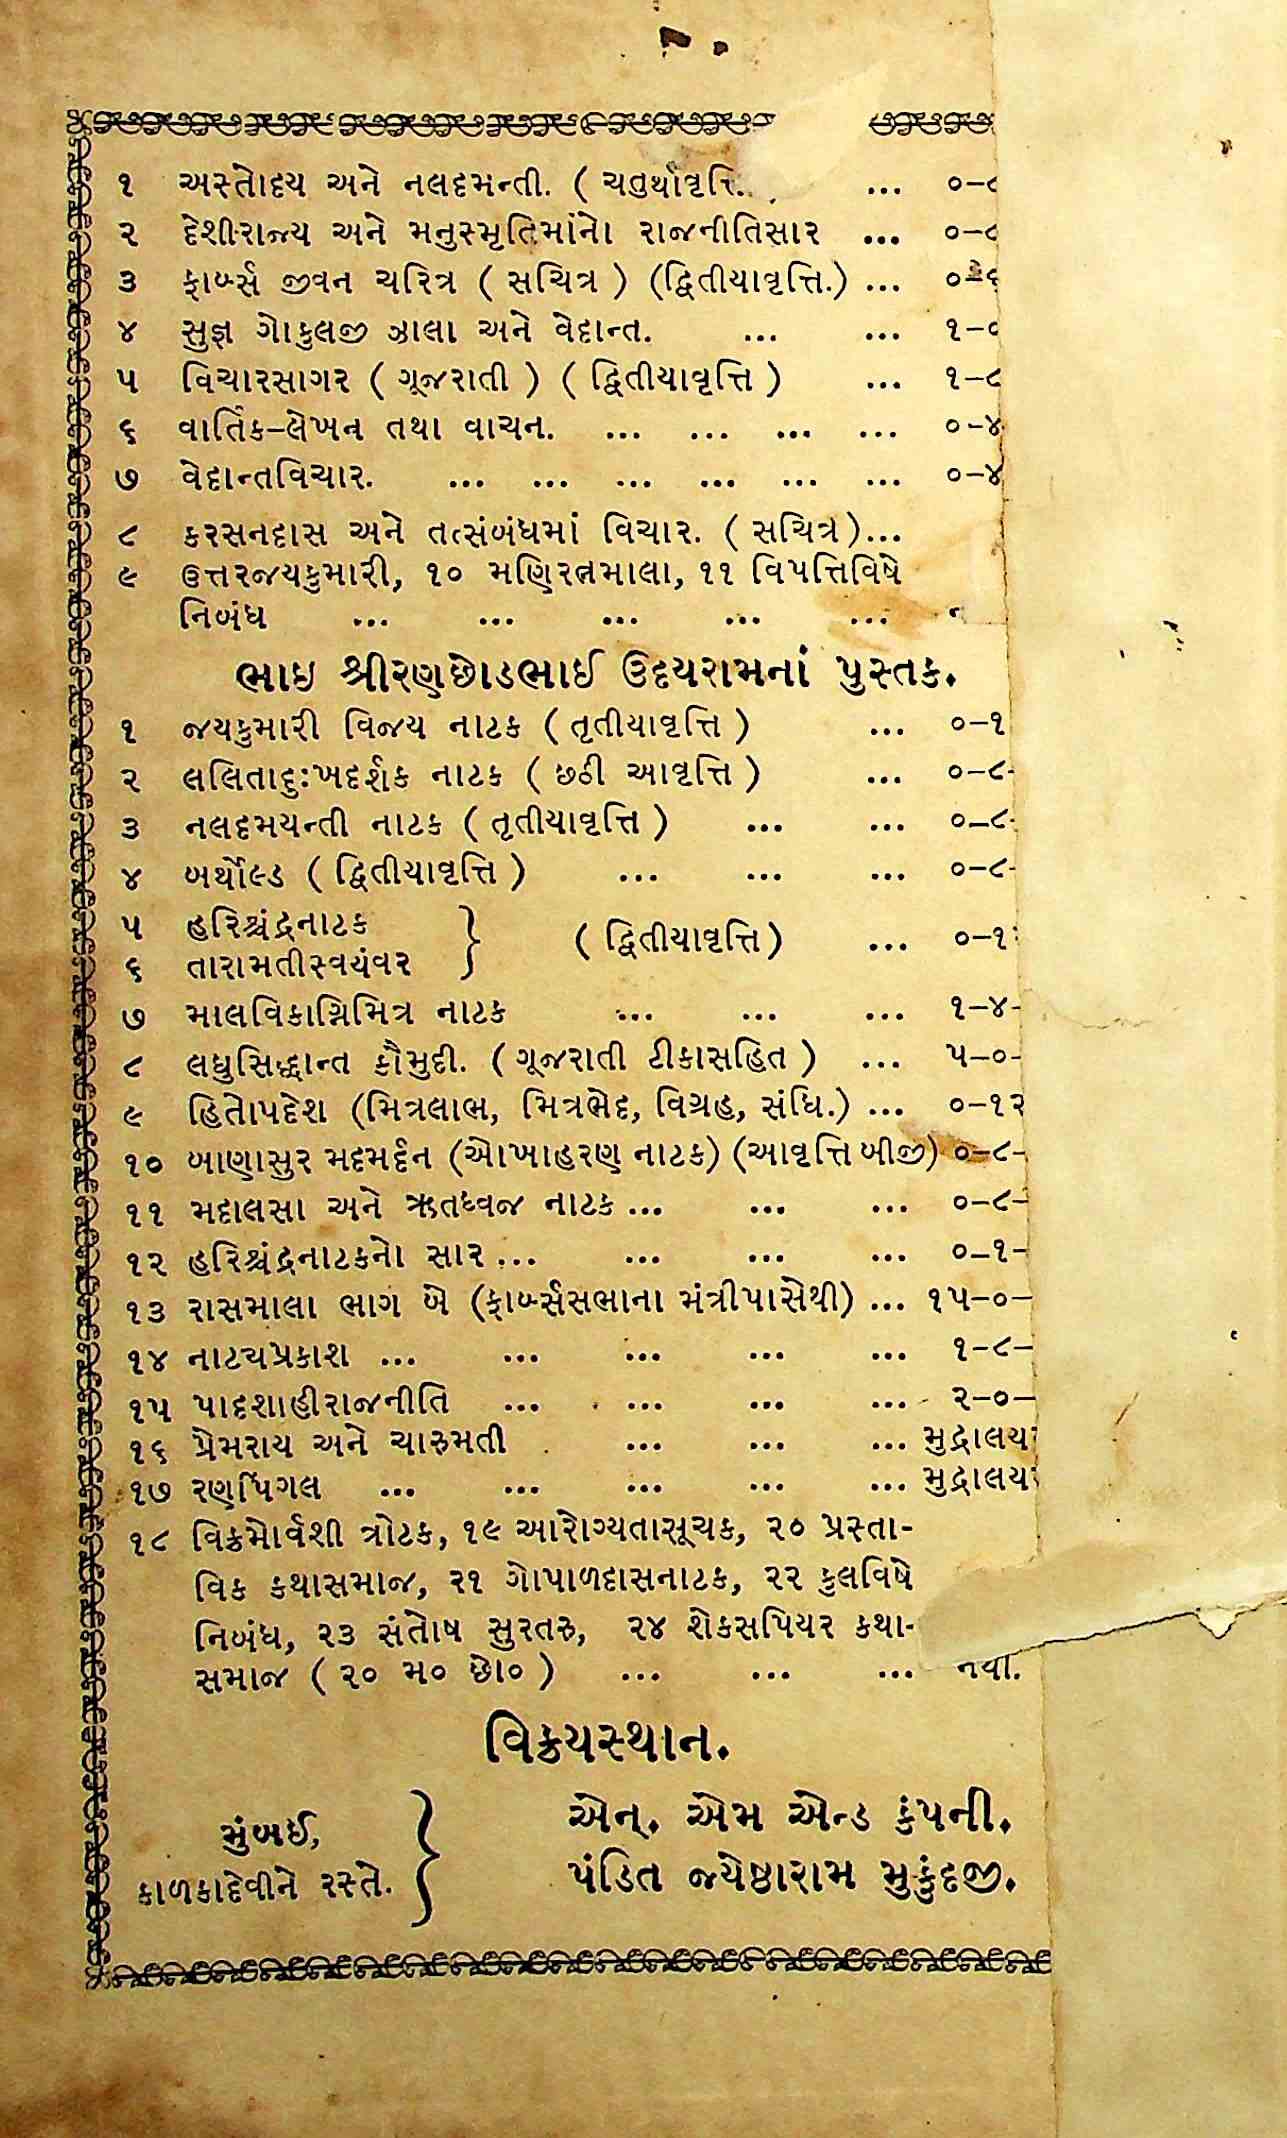 ૧ અસ્તોદય અને નલદમન્તી. ( ચતુર્થાવૃત્તિ. ... ૦-૮
૨ દેશીરાજ્ય અને મનુસ્મૃતિમાંનો રાજનીતિસાર ... ૦-૮
૩ ફાર્બ્સ જીવન ચરિત્ર ( સચિત્ર ) (દ્વિતીયાવૃત્તિ.) ... ૦-૬
૪ સુજ્ઞ ગોકુલજી ઝાલા અને વેદાન્ત. ... ... ૧-૦
૫ વિચારસાગર ( ગૂજરાતી ) ( દ્વિતીયાવૃત્તિ ) ... ૧-૮
૬ વાર્તિક-લેખન તથા વાચન. ... ... ... ... ૦-૪
૭ વેદાન્તવિચાર. ... ... ... ... ... ... ૦-૪
૮ કરસનદાસ અને તત્સંબંધમાં વિચાર. ( સચિત્ર )...
૯ ઉત્તરજયકુમારી, ૧૦ મણિરત્નમાલા, ૧૧ વિપત્તિવિષે
નિબંધ ... ... ... ... ...
ભાઇ શ્રીરણછોડભાઈ ઉદયરામનાં પુસ્તક.
૧ જયકુમારી વિજય નાટક ( તૃતીયાવૃત્તિ ) ... ૦-૧
૨ લલિતાદુઃખદર્શક નાટક ( છઠી આવૃત્તિ ) ... ૦-૮-
૩ નલદમયન્તી નાટક ( તૃતીયાવૃત્તિ ) ... ... ૦-૮-
૪ બર્થોલ્ડ ( દ્વિતીયાવૃત્તિ ) ... ... ... ૦-૮-
૫ હરિશ્ચંદ્રનાટક } ( દ્વિતીયાવૃત્તિ ) ... ૦-૧
૬ તારામતીસ્વયંવર
૭ માલવિકાગ્નિમિત્ર નાટક ... ... ... ૧-૪-
૮ લઘુસિદ્ધાન્ત કૌમુદી. ( ગૂજરાતી ટીકાસહિત ) ... ૫-૦-
૯ હિતોપદેશ (મિત્રલાભ, મિત્રભેદ, વિગ્રહ, સંધિ.) ... ૦-૧૨
૧૦ બાણાસુર મદમર્દન (ઓખાહરણ નાટક) (આવૃત્તિ બીજી) ૦-૮-
૧૧ મદાલસા અને ઋતધ્વજ નાટક ... ... ... ૦-૮-
૧૨ હરિશ્ચંદ્રનાટકનો સાર ... ... ... ... ૦-૧-
૧૩ રાસમાલા ભાગ બે (ફાર્બ્સસભાના મંત્રીપાસેથી) ... ૧૫-૦-
૧૪ નાટ્યપ્રકાશ ... ... ... ... ... ૧-૮-
૧૫ પાદશાહીરાજનીતિ ... ... ... ... ૨-૦-
૧૬ પ્રેમરાય અને ચારુમતી ... ... ... મુદ્રાલય
૧૭ રણપિંગલ ... ... ... ... ... મુદ્રાલય
૧૮ વિક્રમોર્વશી ત્રોટક, ૧૯ આરોગ્યતાસૂચક, ૨૦ પ્રસ્તા-
વિક કથાસમાજ, ૨૧ ગોપાળદાસનાટક, ૨૨ કુલવિષે
નિબંધ, ૨૩ સંતોષ સુરતરુ, ૨૪ શેકસપિયર કથા-
સમાજ ( ૨૦ મ૦ છો૦ ) ... ... ... નથી.
વિક્રયસ્થાન.
મુંબઈ, } એન્. એમ એન્ડ કંપની.
કાળકાદેવીને રસ્તે. પંડિત જ્યેષ્ઠારામ મુકુંદજી.